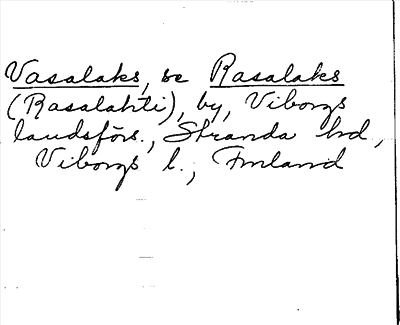 Vasalaks, se Rasalaks
(Rasalahti), by, Viborgs
landsförs., Stranda hd,
Viborgs l., Finland